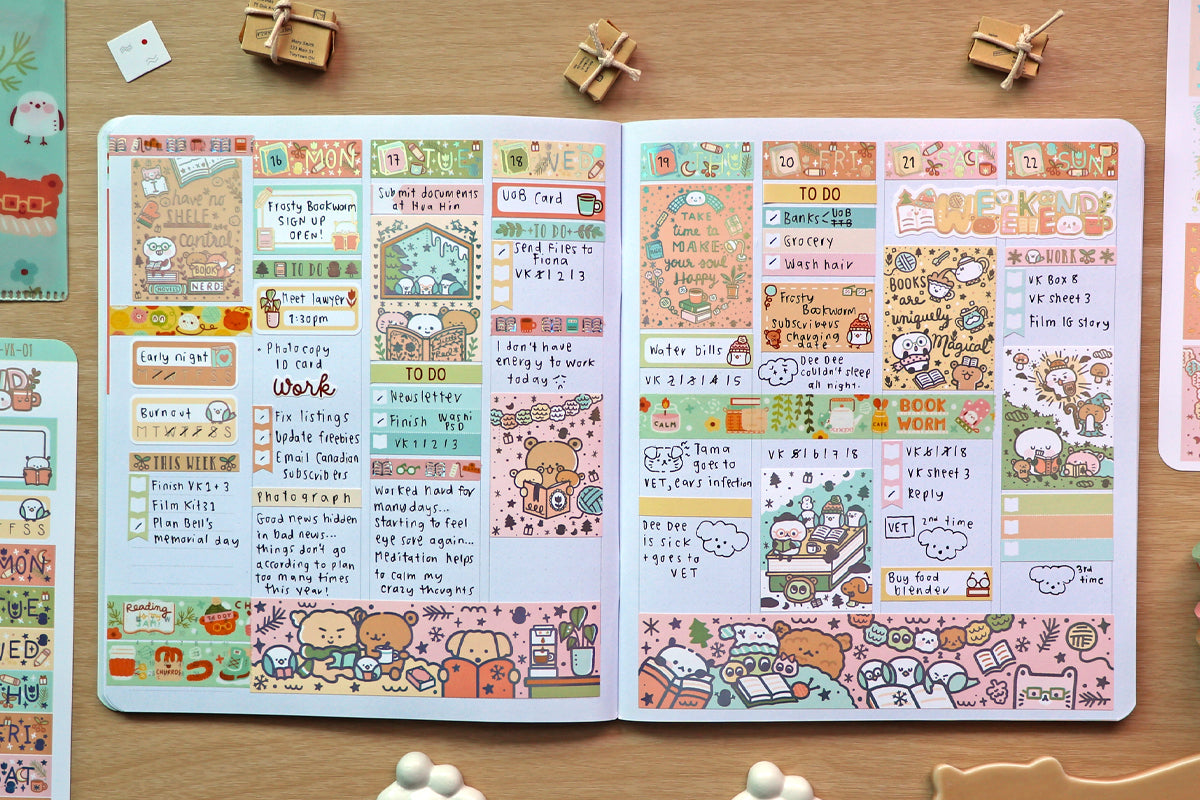 Mary Smith
123 Main St
Tinytown, ON
-VK-01
MON
TUE
WED
THU
FRI
SAT
have no
SHELF
control
BOOK
NERD
NOVELS
Early night
M T W T F S S
Burnout
M T W T F S S
THIS WEEK
Finish VK 1 + 3
Film Kit 31
Plan Bell's
memorial day
Reading
JAM!
CHURROS
16 MON
Frosty Bookworm
SIGN UP
OPEN!
TO DO
Meet lawyer
1:30pm
• Photocopy
ID card
Work
Fix listings
Update freebies
Email Canadian
subscribers
Photograph
Good news hidden
in bad news...
things don't go
according to plan
too many times
this year!
17 TUE
Submit documents
at Hua Hin
TO DO
Newsletter
Finish washi
PSD
VK 1 2 3
Worked hard for
many days...
starting to feel
eye sore again...
Meditation helps
to calm my
crazy thoughts
18 WED
UOB Card
TO DO
Send files to
Fiona
VK 1 2 3
I don't have
energy to work
today
19 THU
TAKE
time to
MAKE
your soul
Happy
Water bills
VK 2 3 4 5
CALM
CAFE
BOOK
WORM
Tama
goes to
VET, ears infection
Dee Dee
is sick
+ goes to
VET
20 FRI
TO DO
Banks < UOB
TTB
Grocery
Wash hair
Frosty
Bookworm
subscribers
charging
date
Dee Dee
couldn't sleep
all night.
VK 5 6 7 8
21 SAT
WEEKEND
BOOKS
are
uniquely
Magical
VK 8
VK sheet 3
Reply
VET 2nd time
Buy food
blender
22 SUN
WORK
VK Box 8
VK sheet 3
Film IG story
3rd
time